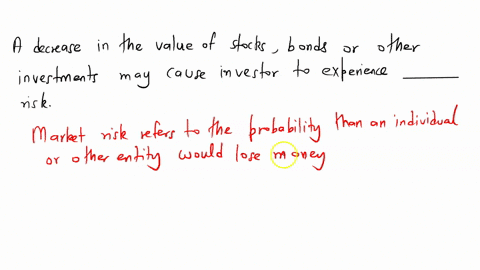 A decrease in the value of stocks, bonds or other
investments may cause investor to experience ______
risk.
Market risk refers to the probability than an individual
or other entity would lose money